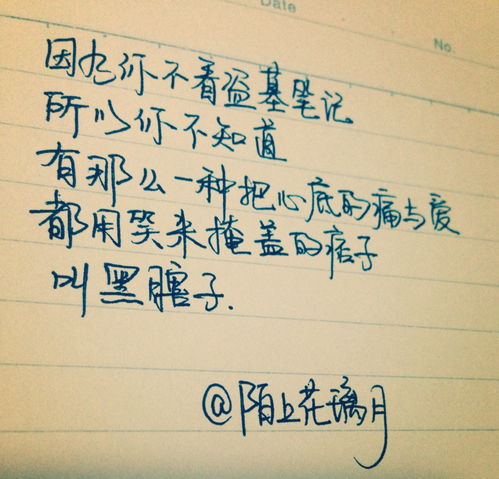 Date
No.
因为你不看盗墓笔记
所以你不知道
有那么一种把心底的痛与爱
都用笑来掩盖的痞子
叫黑瞎子.
@陌上花璃月